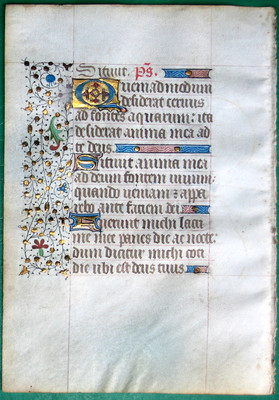 Sitiuit. Ps.
Quemadmodum
desiderat ceruus
ad fontes aquarum: ita
desiderat anima mea ad
te deus
Sitiuit anima mea
ad deum fontem uiuum:
quando ueniam & appa
rebo ante faciem dei
Fuerunt michi lacri
me mee panes die ac nocte:
dum dicitur michi coti
die ubi est deus tuus.